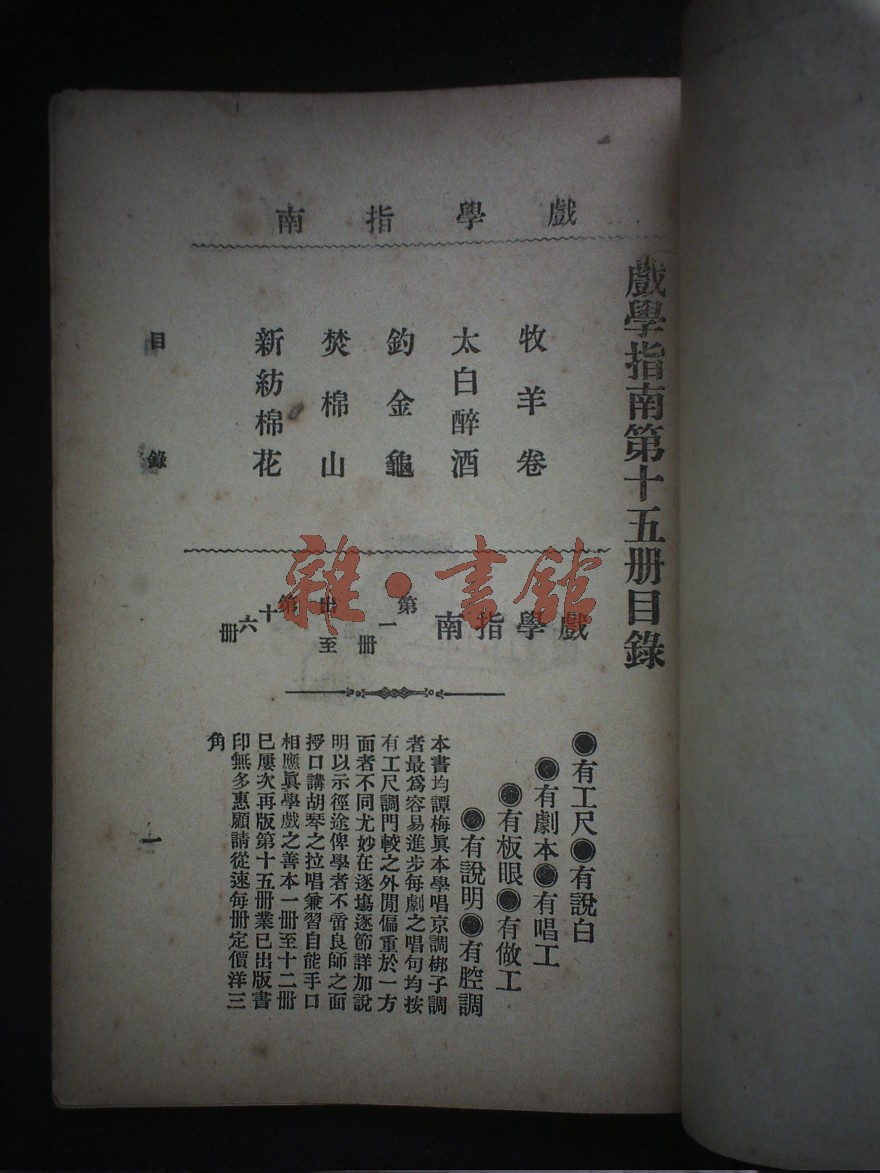 戲學指南
戲學指南第十五册目錄
牧羊卷
太白醉酒
釣金龜
焚棉山
新紡棉花
目錄
戲學指南
第一册
出至
第十六
册
●有工尺●有說白
●有劇本●有唱工
●有板眼●有做工
●有說明●有腔調
本書均譚梅眞本學唱京調梆子調
者最爲容易進步每劇之唱句均按
有工尺調門較之外間偏重於一方
面者不同尤妙在逐塲逐節詳加說
明以示徑途俾學者不啻良師之面
授口講胡琴之拉唱兼習自能手口
相應眞學戲之善本一册至十二册
已屢次再版第十五册業已出版書
印無多惠願請從速每册定價洋三
角
一
雜·書館